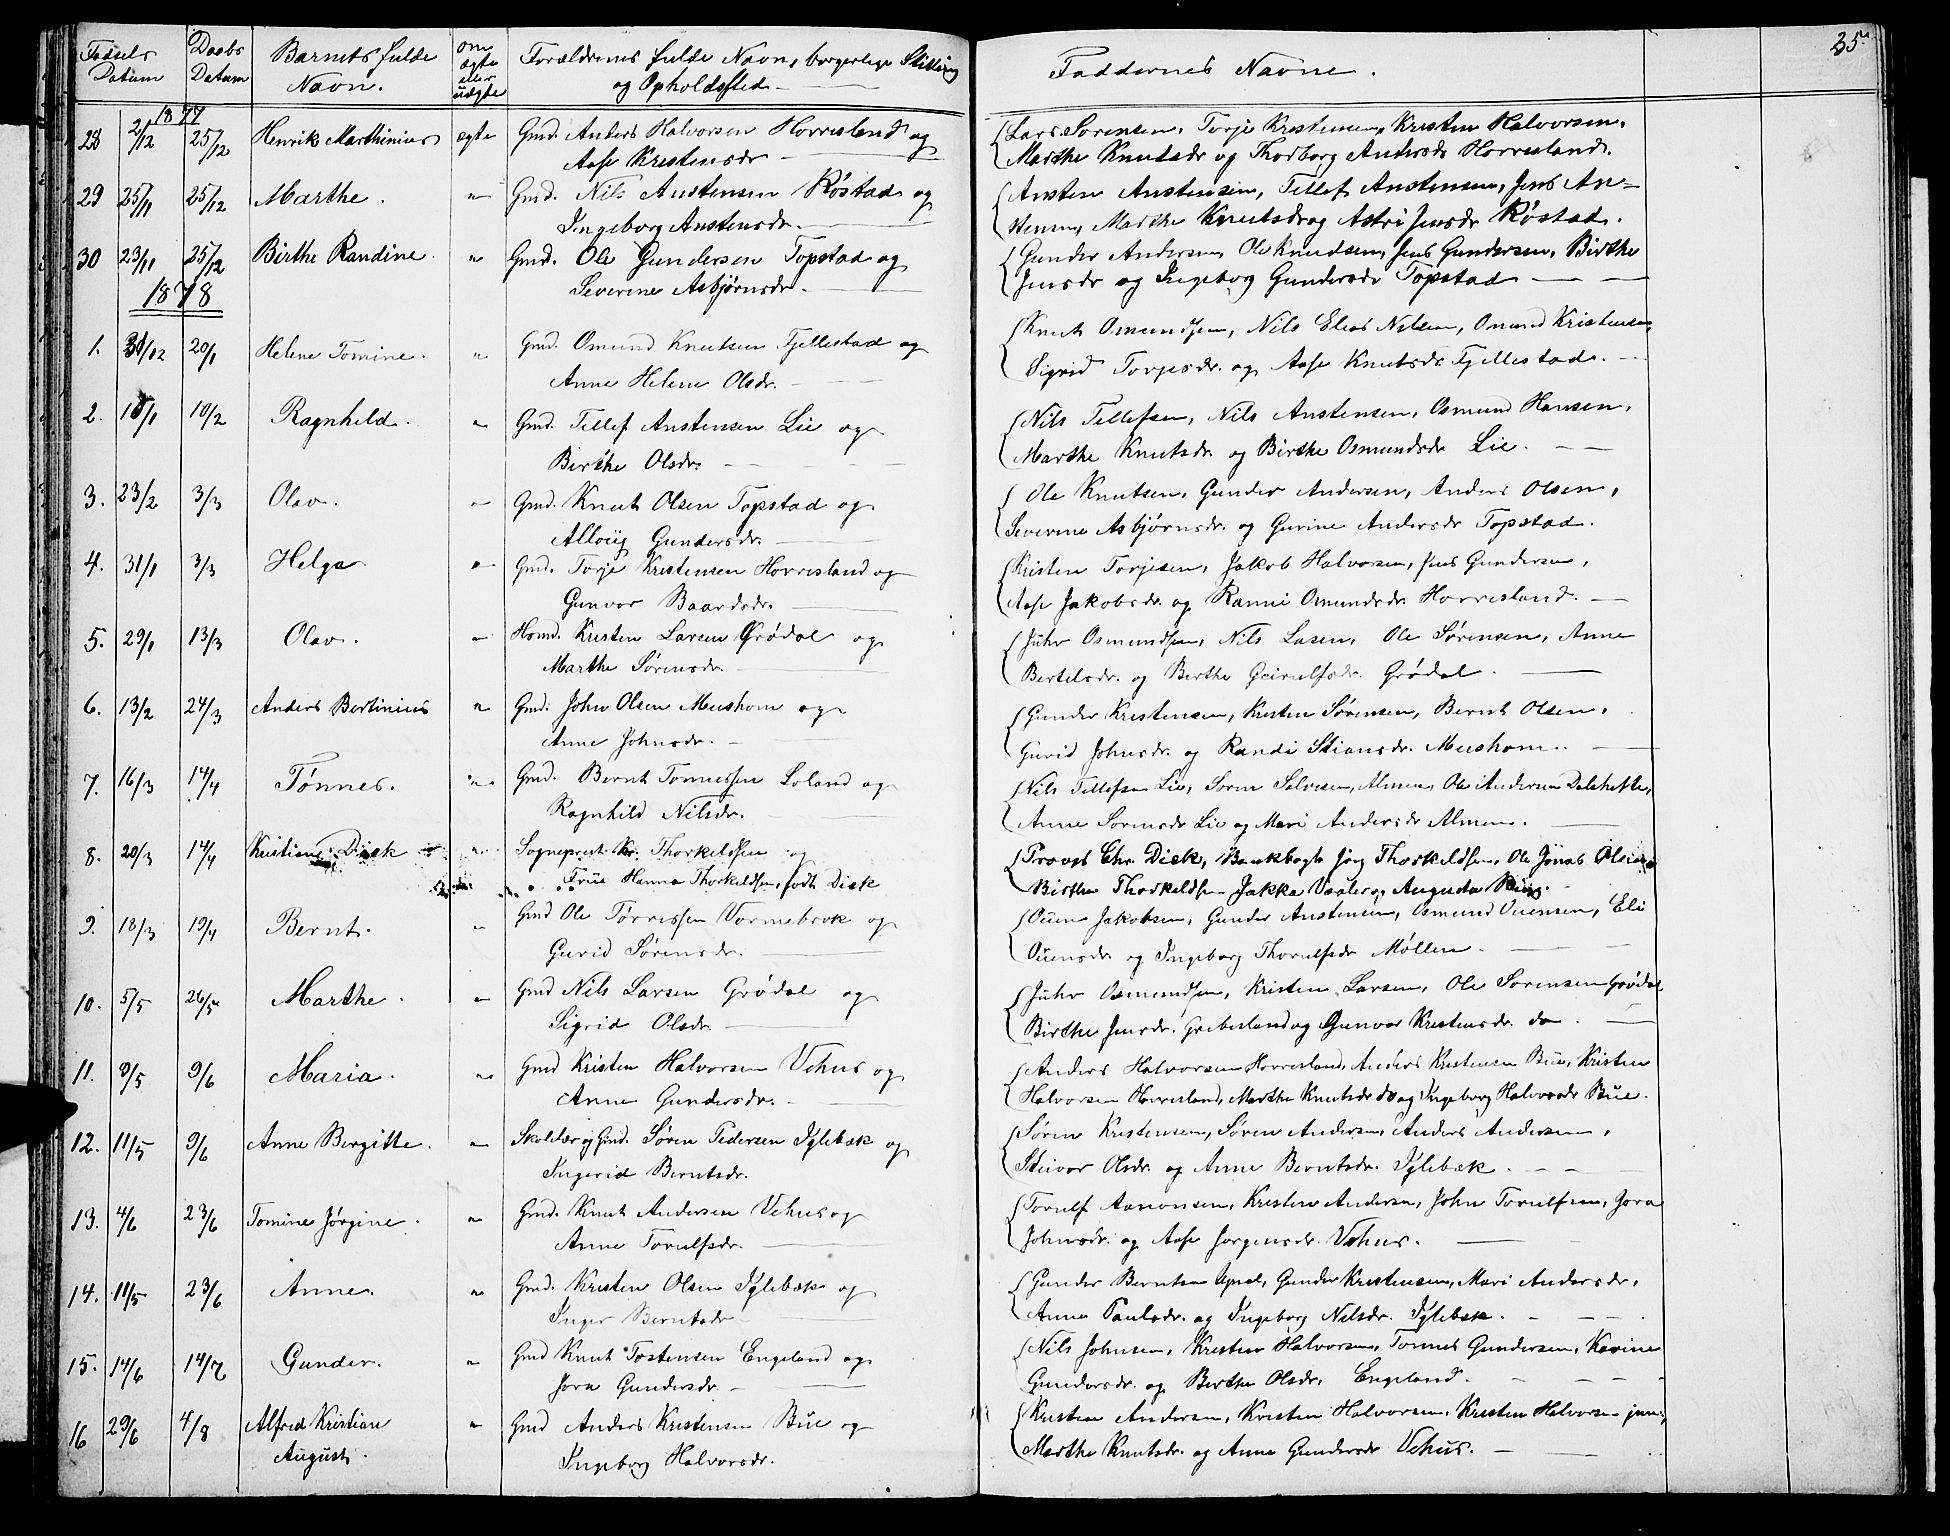 35.
Fødsels Datum
Daabs Datum
Barnets fulde Navn.
om ægte eller uægte
Forældrenes fulde Navn, borgerlige Stilling og Opholdssted
Faddernes Navne.
1877
28 2/12 25/12 Henrik Marthinius ægte Gmd. Anders Halvorsen Horrisland og
Aase Kristensdr
{Lars Sørensen, Torje Kristensen, Kristen Halvorsen,
Marthe Knutsdr og Thorborg Andersdr Horrisland.
29 25/11 25/12 Marthe. " Gmd. Nils Anstensen Røstad og
Ingeborg Anstensdr.
{Ansten Anstensen, Tellef Anstensen, Jens An-
stensen, Marthe Knutsdr og Astri Jensdr Røstad.
30 23/11 25/12 Birthe Randine. " Gmd. Ole Gundersen Topstad og
Severine Asbjørnsdr.
{Gunder Andersen, Ole Knudsen, Jens Gundersen, Birthe
Jensdr og Ingeborg Gundersdr Topstad
1878
1. 31/12 20/1 Helene Tomine. " Gmd. Osmund Knutsen Fjellestad og
Anne Helene Olsdr.
{Knut Osmundsen, Nils Elias Nilsen, Osmund Kristensen
Sigrid Torjesdr. og Aase Knutsdr Fjellestad.
2. 10/1 10/2 Ragnhild. " Gmd. Tellef Anstensen Lie og
Birthe Olsdr.
{Nils Tellefsen, Nils Anstensen, Osmund Hansen,
Marthe Knutsdr. og Birthe Osmundsdr Lie.
3. 23/2 3/3 Olav. " Gmd. Knut Olsen Topstad og
Alloug Gundersdr.
{Ole Knutsen, Gunder Andersen, Anders Olsen,
Severine Asbjørnsdr. og Gurine Andersdr Topstad.
4. 31/1 3/3 Helga " Gmd. Torje Kristensen Horrisland og
Gunvor Baardsdr.
{Kristen Torjesen, Jakob Halvorsen, Jens Gundersen,
Aase Jakobsdr. og Ranni Osmundsdr. Horrisland.
5. 29/1 13/3 Olav. " Homd. Kristen Larsen Grødal og
Marthe Sørensdr.
{Juhr Osmundsen, Nils Lasen, Ole Sørensen, Anne
Bertelsdr. og Berthe Geirulfsdr. Grødal.
6. 13/2 24/3 Anders Bertinius " Gmd. John Olsen Mushom og
Anne Johnsdr.
{Gunder Kristensen, Kristen Sørensen, Bernt Olsen,
Gurid Johnsdr. og Randi Stiansdr. Mushom.
7. 16/3 14/4 Tønnes. " Gmd. Bernt Tomassen Loland og
Ragnhild Nilsdr.
{Nils Tellefsen Lie, Søren Salvesen, Almen, Ole Andersen Dalehefte,
Anne Sørensdr Lie og Mari Andersdr Almen.
8. 20/3 14/4 Kristiane Dick " Sogneprest Kr. Thorkildsen og
Frue Hanna Thorkildsen, født Dick
{Provst Chr. Dick, Bankbogh. Jørg Thorkildsen, Ole Jonas Olsen,
Birthe Thorkildsen Jakka Vaaler og Augusta Ring.
9. 18/3 19/4 Bernt. " Gmd Ole Tørrissen Vormebrok og
Gurid Sørensdr.
{Ouen Jakobsen, Gunder Anstensen, Osmund Ouensen, Eli
Ouensdr. og Ingeborg Thorulfsdr Møllen.
10. 5/5 26/5 Marthe. " Gmd Nils Larsen Grødal og
Sigrid Olsdr.
{Juhr Osmundsen, Kristen Larsen, Ole Sørensen Grødal,
Birthe Jensdr. Greibesland og Gunvor Kristensdr. do.
11. 9/5 9/6 Maria. " Gmd Kristen Halvorsen Vehus og
Anne Gundersdr.
{Anders Halvorsen Horrisland, Anders Kristensen Bue, Kristen
Halvorsen Horrisland, Marthe Knutsdr do og Ingeborg Halvorsdr Bue.
12. 11/5 9/6 Anne Bergitte. " Skolelær. og Gmd. Søren Pedersen Iglebæk og
Ingerid Berntsdr.
{Søren Kristensen, Søren Andersen, Anders Andersen,
Steivor Olsdr. og Anne Berntsdr. Iglebæk.
13. 4/6 23/6 Tomine Jørgine. " Gmd. Knut Andersen Vehus og
Anne Torulfsdr.
{Torulf Aanonsen, Kristen Andersen, John Torulfsen, Jora
Johnsdr. og Aase Jørgensdr. Vehus.
14. 11/5 23/6 Anne. " Gmd. Kristen Olsen Iglebæk og
Inger Berntsdr
{Gunder Berntsen Upsal, Gunder Kristensen, Mari Andersdr,
Anne Paulsdr. og Ingeborg Nilsdr. Iglebæk.
15. 14/6 14/7 Gunder. " Gmd Knut Tostensen Engeland og
Jora Gundersdr.
{Nils Johnsen, Kristen Halvorsen, Tønnes Gundersen, Karine
Gundersdr. og Berthe Olsdr. Engeland.
16 29/6 4/8 Alfred Kristian
August. " Gmd Anders Kristensen Bue og
Ingeborg Halvorsdr.
{Kristen Andersen, Kristen Halvorsen, Kristen Halvorsen jun.,
Marthe Knutsdr. og Anne Gundersdr Vehus.